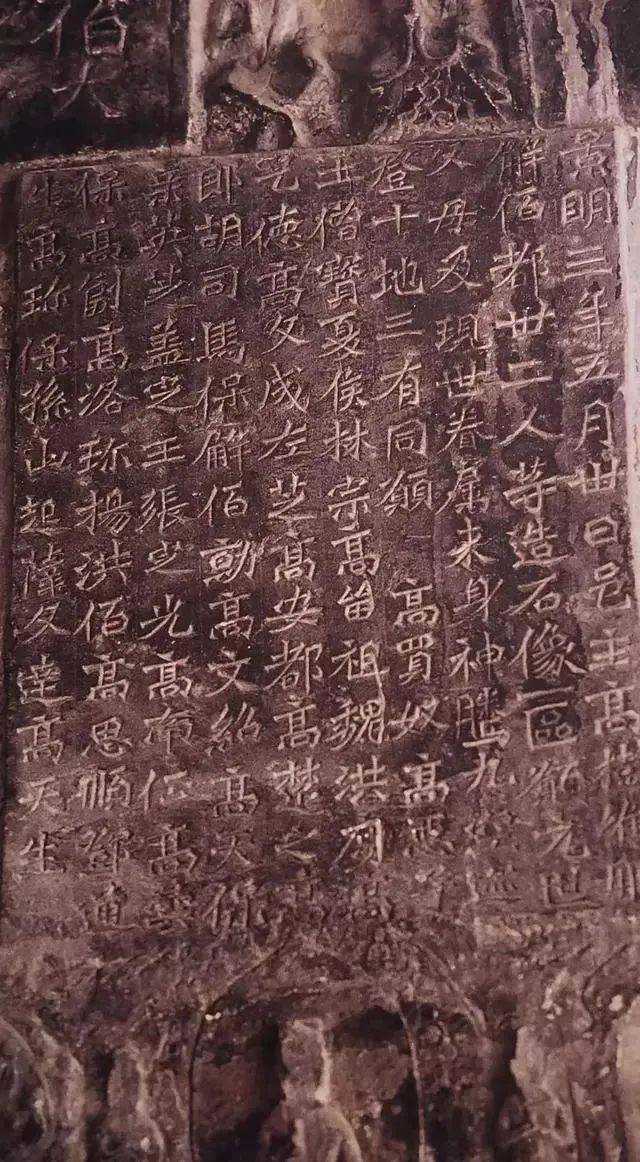 佰
景明三年五月卅日邑主高樹維那
解佰都卅二人等造石像一區願元世
父母及現世眷屬来身神騰九
登十地三有同願 高買奴高惡子
王僧寶夏侯林宗高留祖魏洪度高
乞德高文成左芝高安都高楚之高
郎胡司馬保解佰勳高文紹高天保
英芝盖定王張定光高南征高
保高創高洛珎楊洪佰高思順鄒通
生高珎保孫山起薩文達高天生